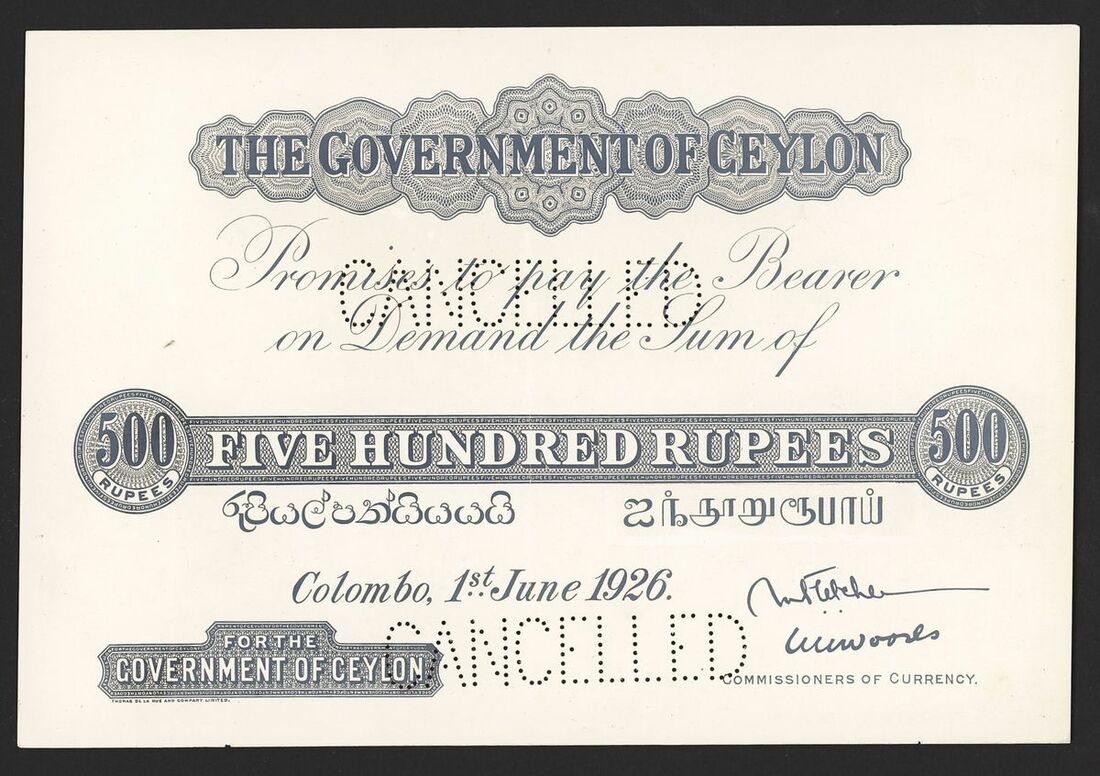 THE GOVERNMENT OF CEYLON
Promises to pay the Bearer
CANCELLED
on Demand the Sum of
500 RUPEES
FIVE HUNDRED RUPEES
500 RUPEES
රුපියල්පන්සියයයි
ஐந்நூறுரூபாய்
Colombo, 1st June 1926.
FOR THE
GOVERNMENT OF CEYLON
CANCELLED
COMMISSIONERS OF CURRENCY.
THOMAS DE LA RUE AND COMPANY, LIMITED.